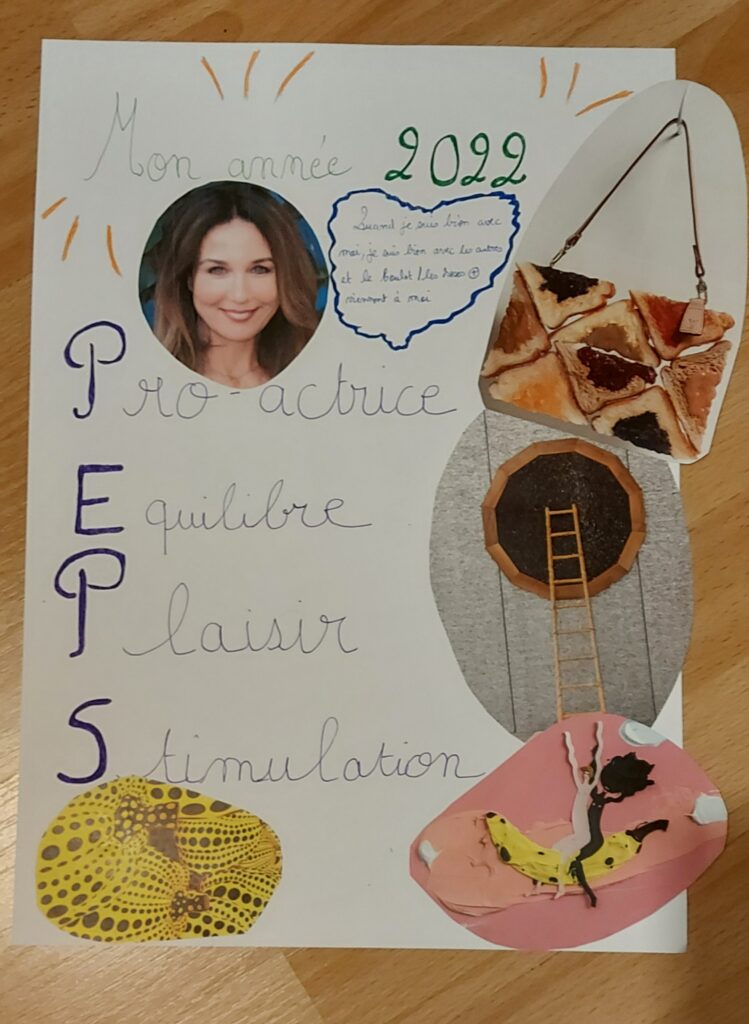 Mon année 2022
Quand je suis bien avec
moi, je suis bien avec les autres
et le boulot / les
viennent à moi
Pro-actrice
Equilibre
Plaisir
Stimulation